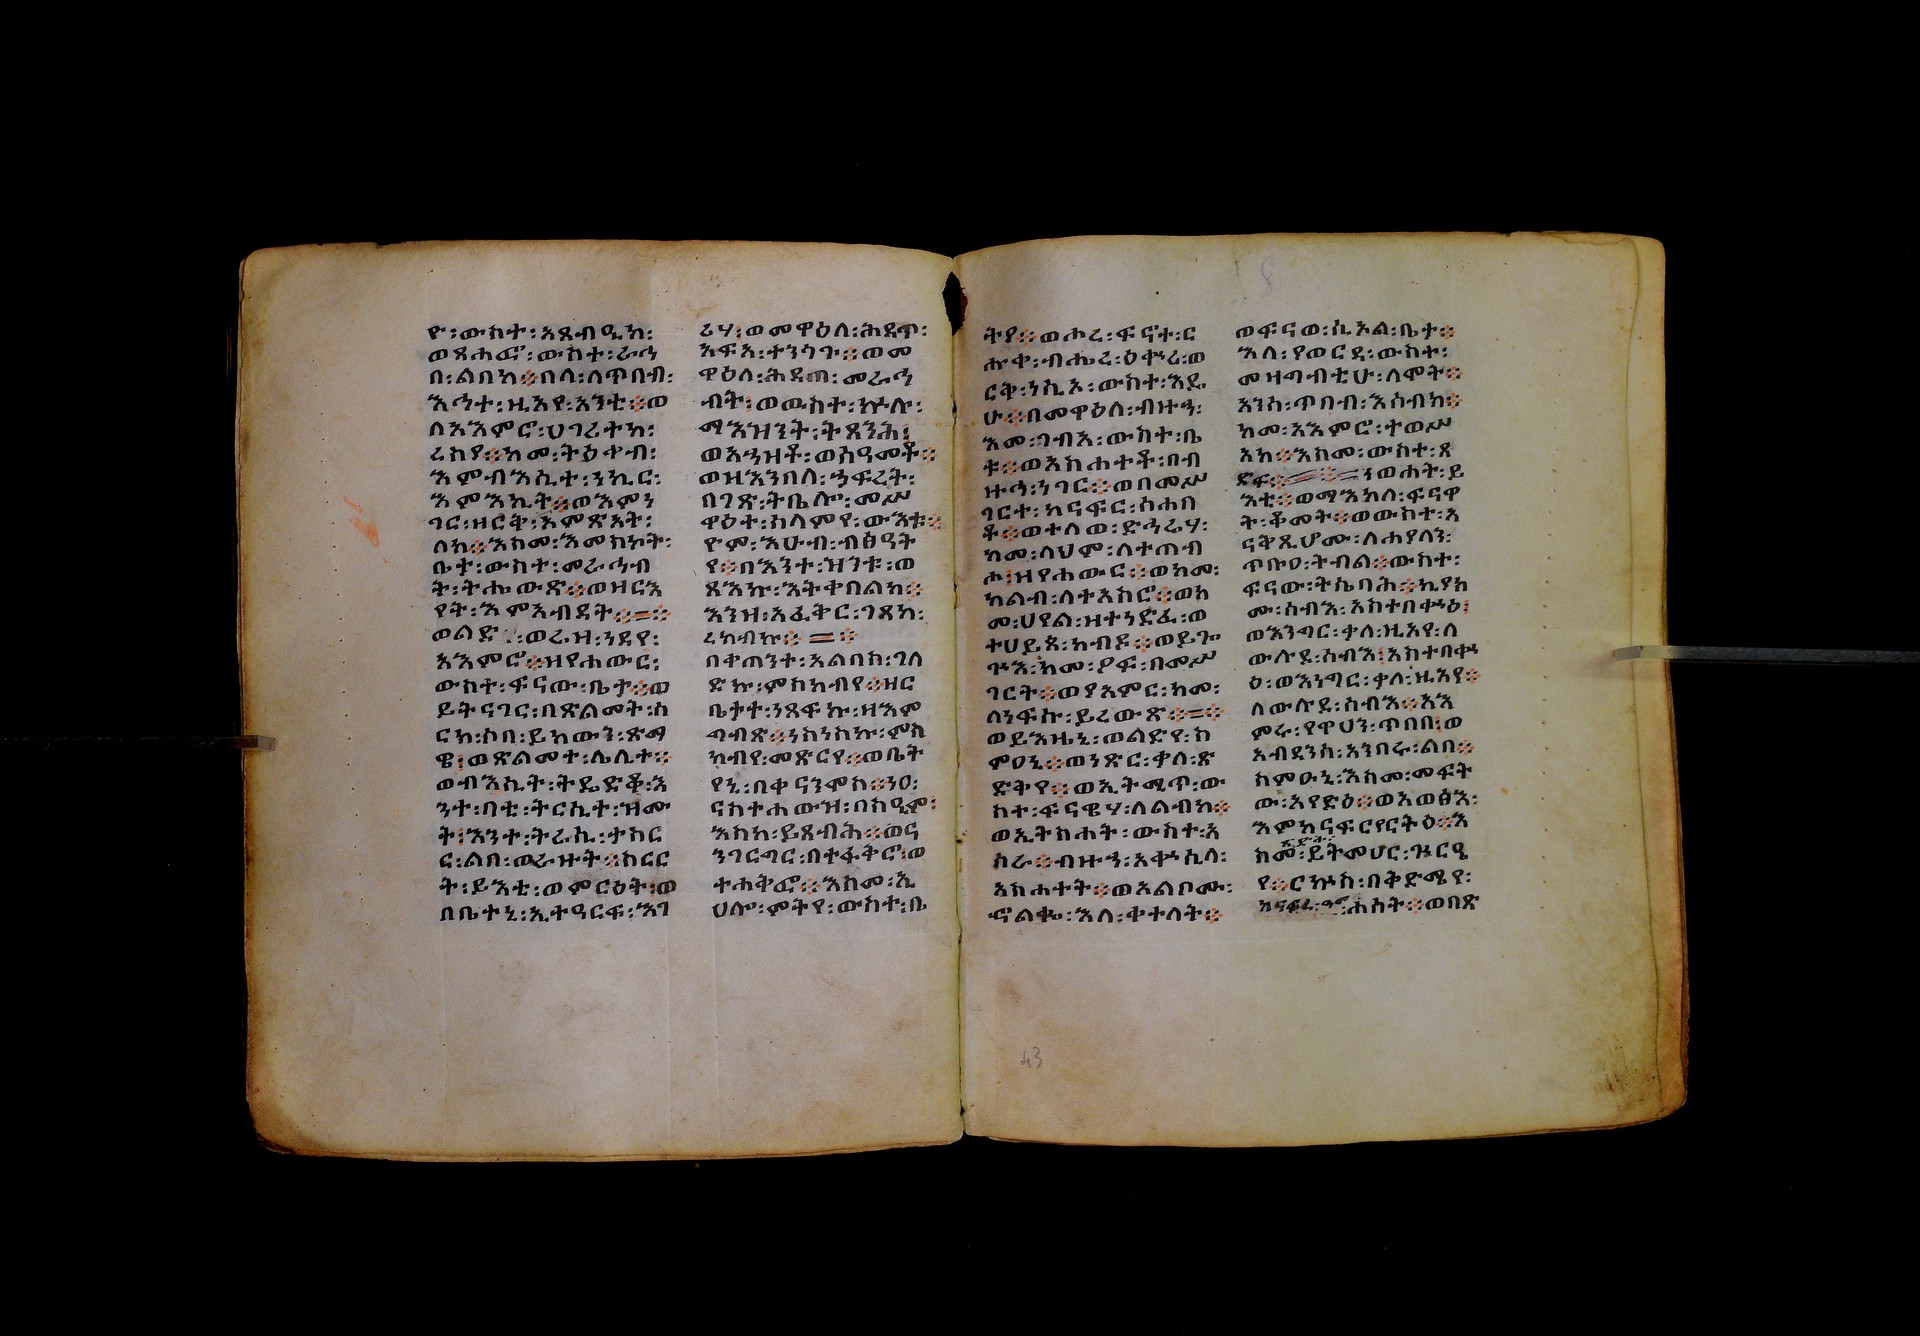 ዮ፡ውስተ፡አጻብዒከ፡
ወጸሐፎ፡ውስተ፡ራኅ
በ፡ልበከ፨በላ፡ለጥበብ፡
እኅተ፡ዚአየ፡አንቲ፨ወ
ለአእምሮ፡ሀገሪተከ፡
ረስየ፨ከመ፡ትዕቀብ፡
እምብእሲተ፡ነኪር፡
እምእኪት፨ወእምነ
ገር፡ዘርቅ፡እምጽአት፡
ለከ፨እስመ፡እመስኮት፡
ቤት፡ውስተ፡መራኅብ
ት፡ትሔውጽ፨ወዘርእ
የት፡እምአብዳት፨=፨
ወልድ፡ወሬዛ፡ነደየ፡
አእምሮ፨ዝየሐውር፡
ውስተ፡ፍናው፡ቤታ፨ወ
ይትናገር፡በጽልመት፡ሰ
ርከ፡ሶበ፡ይከውን፡ጽማ
ዌ፡ወጽልመተ፡ሌሊተ፨
ወብእሲት፡ትዴድቆ፡እ
ንተ፡ባቲ፡ትርሲት፡ዝሙ
ት፡እንተ፡ትሬሲ፡ታሰር
ር፡ልበ፡ወራዙት፨ስርር
ት፡ይእቲ፡ወምርዕት፡ወ
በቤተኒ፡ኢተዓርፍ፡እገ
ሪሃ፡ወመዋዕለ፡ሕዳጥ፡
አፍአ፡ተንሳጉ፨ወመ
ዋዕለ፡ሕዳጠ፡መራኅ
ብት፡ወውስተ፡ኵሉ፡
ማእዝንት፡ትጸንሕ፡
ወአኀዝቶ፡ወሰዓመቶ፨
ወዝእንበለ፡ኀፍረት፡
በገጽ፡ትቤሎ፡መሥ
ዋዕተ፡ሰላምየ፡ውእቱ፨
ዮም፡እሁብ፡ብፅዓት
የ፨በእንተ፡ዝንቱ፡ወ
ጻእኩ፡እትቀበልከ፨
እንዘ፡አፈቅር፡ገጸከ፡
ረከብኩ፨=፨
በቀጠንተ፡አልባስ፡ገለ
ድኩ፡ምስካብየ፨ዘር
ቤታተ፡ነጸፍኩ፡ዘእም
ግብጽ፨ነስነስኩ፡ምስ
ካብየ፡መጽርየ፨ወቤት
የኒ፡በቀናንሞስ፨ነዐ፡
ናስተሐውዝ፡በስዒም፡
እስከ፡ይጸብሕ፨ወና
ንገርግር፡በተፋቅሮ፡ወ
ተሐቅፎ፨እስመ፡ኢ
ሀሎ፡ምትየ፡ውስተ፡ቤ
ትየ፨ወሖረ፡ፍኖተ፡ር
ሑቀ፡ብሔረ፡ዕቍረ፡ወ
ርቅ፡ነሢኦ፡ውስተ፡እዴ
ሁ፨በመዋዕለ፡ብዙኅ፡
እመ፡ገብአ፡ውስተ፡ቤ
ቱ፨ወአስሐተቶ፡በብ
ዙኅ፡ነገር፨ወበመሥ
ገርተ፡ከናፍር፡ሰሐበ
ቶ፨ወተለወ፡ድኅሬሃ፡
ከመ፡ላህም፡ለተጠብ
ሖ፡ዝየሐውር፨ወከመ፡
ከልብ፡ለተአስሮ፨ወከ
መ፡ሀየል፡ዘተነድፈ፡ወ
ተሀይጸ፡ከብዶ፨ወይጐ
ጕእ፡ከመ፡ዖፍ፡በመሥ
ገርት፨ወያአምር፡ከመ፡
ለነፍሱ፡ይረውጽ፨=፨
ወይእዜኒ፡ወልድየ፡ስ
ምዐኒ፨ወነጽር፡ቃለ፡ጽ
ድቅየ፨ወኢትሚጥ፡ው
ስተ፡ፍናዌሃ፡ለልብከ፨
ወኢትስሐት፡ውስተ፡አ
ሰራ፨ብዙኃ፡አቍሲላ፡
አስሐተት፨ወአልቦሙ፡
ኆልቈ፡እለ፡ቀተለት፨
ወፍናወ፡ሲኦል፡ቤታ፨
እለ፡የወርዳ፡ውስተ፡
መዛግብቲሁ፡ለሞት፨
አንሰ፡ጥበብ፡እሰብክ፨
ከመ፡አእምሮ፡ተወሥ
አከ፨እስመ፡ውስተ፡ጸ
ድፍ፨ነዋሐት፡ይ
እቲ፨ወማእከለ፡ፍናዋ
ት፡ቆመት፨ወውስተ፡አ
ናቅጺሆሙ፡ለሐያላን፡
ጥቡዐ፡ትብል፨ውስተ፡
ፍናው፡ትሴባሕ፨ኪያከ
ሙ፡ሰብእ፡አስተበቍዕ፡
ወእነግር፡ቃለ፡ዚአየ፡ለ
ውሉደ፡ሰብእ፡አስተበቍ
ዕ፡ወእነግር፡ቃለ፡ዚአየ፨
ለውሉደ፡ሰብእ፨አእ
ምሩ፡የዋሀን፡ጥበበ፡ወ
አብዳንሰ፡አንበሩ፡ልበ፨
ስምዑኒ፡እስመ፡መፍት
ው፡አየድዕ፨ወአወፅእ፡
እምከናፍርየ፡ርትዕ፨እ
ስመ፡ይትመሀር፡ጕርዔ
የ፨ርኩስ፡በቅድሜየ፡
ከናፍረ፡ዓመ፡ሐሰት፨ወበጽ
43
8